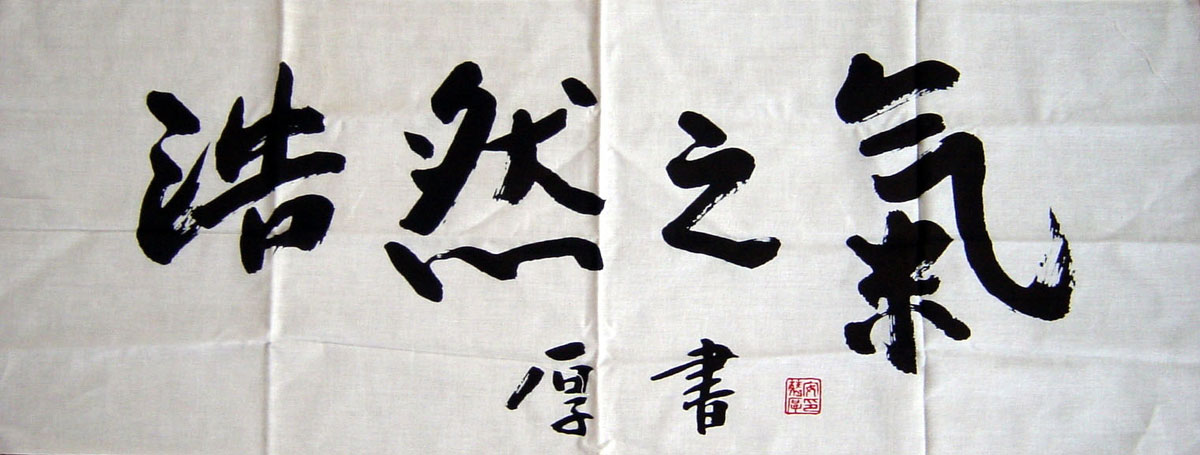 浩然之氣
厚書